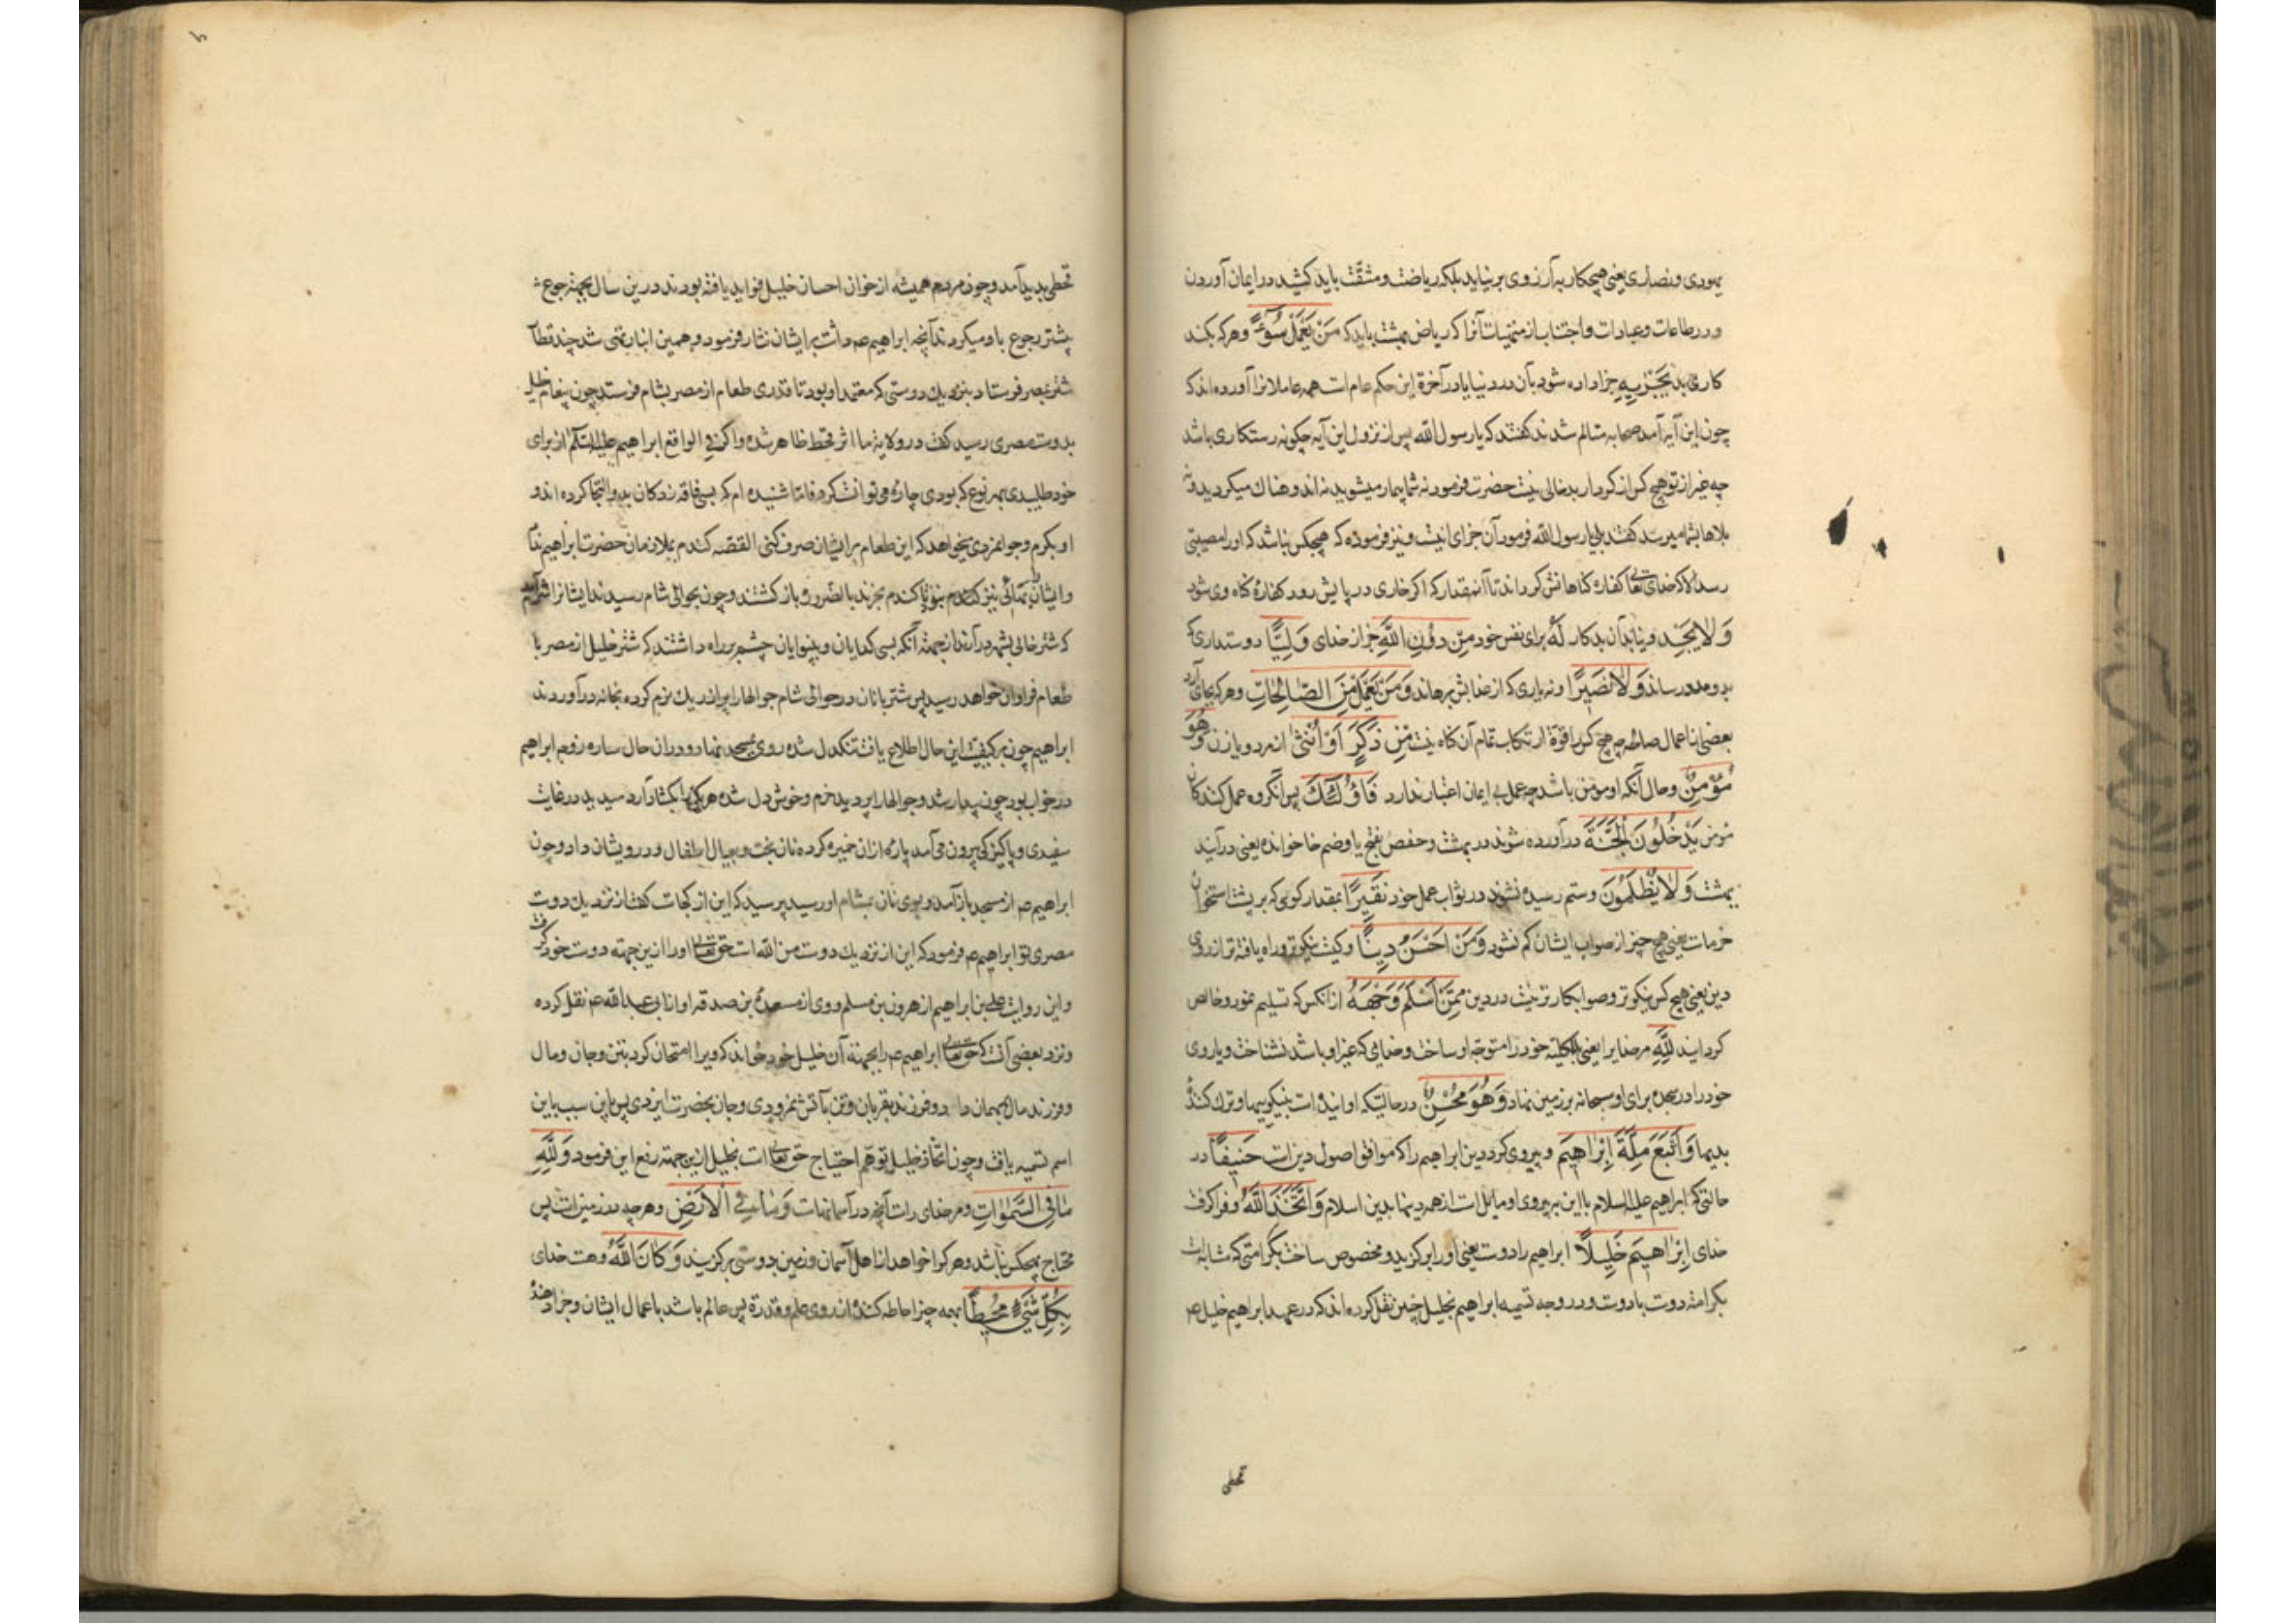 یهودی و نصاری یعنی هیچکار به آرزوی بر نیاید بلکه ریاضت و مشقت باید کشید در ایمان آوردن
و در طاعات و عبادات و اجتناب از منهیات آنرا که ریاض بهشت باید که مَنْ يَعْمَلْ سُوءًا وهرکه بکند
کاری بد يُجْزَ بِهِ جزا داده شود بآن در دنیا یا در آخرة این حکم عام است همه عاملانرا آورده اند که
چون این آیه آمد صحابه متالم شدند گفتند که یا رسول الله پس از نزول این آیه چگونه رستکاری باشد
چه غیر از تو هیچ کس از کردار بد خالی نیست حضرت فرمود نه شما بیمار میشوید نه اندوهناک میگردید و نه
بلاها بشما میرسد گفتند بلی یا رسول الله فرمود آن جزای اینست و نیز فرموده که هیچکس نباشد که او را مصیبتی
رسد الا که خدای تعالی کفاره گناهانش گرداند تا آنمقدار که اگر خاری در پایش رود کفارهٔ گناه وی شود
وَلَا يَجِدْ و نیابد آن بدکار لَهُ برای نفس خود مِن دُونِ اللَّهِ جز از خدای وَلِيًّا دوستداری که
بدو مدد رساند وَلَا نَصِيرًا و نه یاری که از عذابش برهاند وَمَن يَعْمَلْ مِنَ الصَّالِحَاتِ وهرکه بجای آرد
بعضی از اعمال صالحه چه هیچ کس را قوة ارتکاب تمام آن گاه نیست مِن ذَكَرٍ أَوْ أُنثَىٰ از مرد و یا زن وَهُوَ
مُؤْمِنٌ و حال آنکه او مومن باشد چه عمل بی ایمان اعتبار ندارد فَأُولَٰئِكَ پس آنگروه عمل کنندگان
مومن يَدْخُلُونَ الْجَنَّةَ در آورده شوند در بهشت و حفص بفتح یا وضم خا خوانده یعنی در آیند
ببهشت وَلَا يُظْلَمُونَ و ستم رسیده نشوند در ثواب عمل خود نَقِيرًا بمقدار گوی که بر پشت استخوان
خرماست یعنی هیچ چیز از ثواب ایشان کم نشود وَمَنْ أَحْسَنُ دِينًا و کیست نیکوتر و راه یافته تر از روی
دین یعنی هیچ کس نیکوتر و صوابکارتر نیست در دین مِمَّنْ أَسْلَمَ وَجْهَهُ از آنکس که تسلیم نمود و خالص
گردانید لِلَّهِ مر خدایرا یعنی بالکلیه خود را متوجه او ساخت و خدایی که غیر او باشد نشناخت و یا روی
خود را در سجده برای او سبحانه بر زمین نهاد وَهُوَ مُحْسِنٌ در حالتیکه او آینده است بنیکوییها و ترک کننده
بدیها وَاتَّبَعَ مِلَّةَ إِبْرَاهِيمَ و پیروی کرد دین ابراهیم را که موافق اصول دین است حَنِيفًا در
حالتی که ابراهیم علیه السلام با این پیروی او مایل است از همه دینها بدین اسلام وَاتَّخَذَ اللَّهُ و فرا گرفت
خدای إِبْرَاهِيمَ خَلِيلًا ابراهیم را دوست یعنی او را برگزید و مخصوص ساخت بکرامتی که مشابه است
بکرامت دوست با دوست و در وجه تسمیه ابراهیم بخلیل چنین نقل کرده اند که در عهد ابراهیم خلیل ع
قحطی
قحطی پدید آمد و چون مردم همیشه از خوان احسان خلیل فواید یافته بودند درین سال بجهة جوع
بیشتر رجوع باو میکردند آنچه ابراهیم ع داشت بر ایشان نثار فرمود و همین انبار تهی شد چند قطار
شتر بمصر فرستاد بنزدیک دوستی که معتمد او بود تا قدری طعام از مصر بشام فرستد چون پیغام خلیل
بدوست مصری رسید گفت در ولایة ما اثر قحط ظاهر شده و اگر فی الواقع ابراهیم علیه السلام از برای
خود طلبیدی بهر نوع که بودی چاره می توانست کرد فاما شنیده ام که بسی فاقه زدگان بدو التجا کرده اند و
او بکرم و جوانمردی میخواهد که این طعام بر ایشان صرف کند القصه گندم بملازمان حضرت ابراهیم نداد
و ایشان بجهت بینوایی گندم بخرند بالضروره باز گشتند و چون بحوالی شام رسیدند ایشانرا شرم آمد
که شتر خالی بشهر در آرند از جهت آنکه بسی گدایان و بینوایان چشم بر راه داشتند که شتر خلیل از مصر با
طعام فراوان خواهد رسید پس شتربانان در حوالی شام جوالها را پر از ریک نرم کرده بخانه در آوردند
ابراهیم چون بر کیفیت این حال اطلاع یافت تنکدل شده روی بمسجد نهاد و در آن حال ساره زوجه ابراهیم
در خواب بود چون بیدار شد و جوالها را پر دید خرم و خوش دل شده سر یکی را بگشاد آرد سید بد در غایت
سفیدی و پاکیزگی بیرون می آمد پاره از آن خمیره کرده نان پخت و بعیال اطفال و درویشان داد و چون
ابراهیم ع از مسجد باز آمد و بوی نان بمشام او رسید پرسید که این از کجاست گفت از نزدیک دوست
مصری تو ابراهیم ع فرمود که این از نزدیک دوست من الله است حق تعالی او را ازین جهة دوست خود گرفت
و این روایت علی بن ابراهیم از هرون بن مسلم و وی از مسعدة بن صدقه او از ابی عبدالله ع نقل کرده
و نزد بعضی آنست که حق تعالی ابراهیم ع را بجهة آن خلیل خود خواند که ویرا امتحان کرد بتن و جان و مال
و فرزند مال بمهمان داد و فرزند بقربان و تن بآتش نمرودی و جان بحضرت ایزدی پس باین سبب باین
اسم تسمیه یافت و چون اتخاذ خلیل توهم احتیاج حق تعالی است بخلیل ازین جهة رفع این فرمود وَلِلَّهِ
مَا فِي السَّمَاوَاتِ و مر خدای راست آنچه در آسمانهاست وَمَا فِي الْأَرْضِ و هرچه در زمین است پس
محتاج بهیچکس نباشد و هر کرا خواهد از اهل آسمان و زمین بدوستی برگزیند وَكَانَ اللَّهُ و هست خدای
بِكُلِّ شَيْءٍ مُحِيطًا بهمه چیز احاطه کننده از روی علم و قدرة پس عالم باشد باعمال ایشان و جزا دهنده